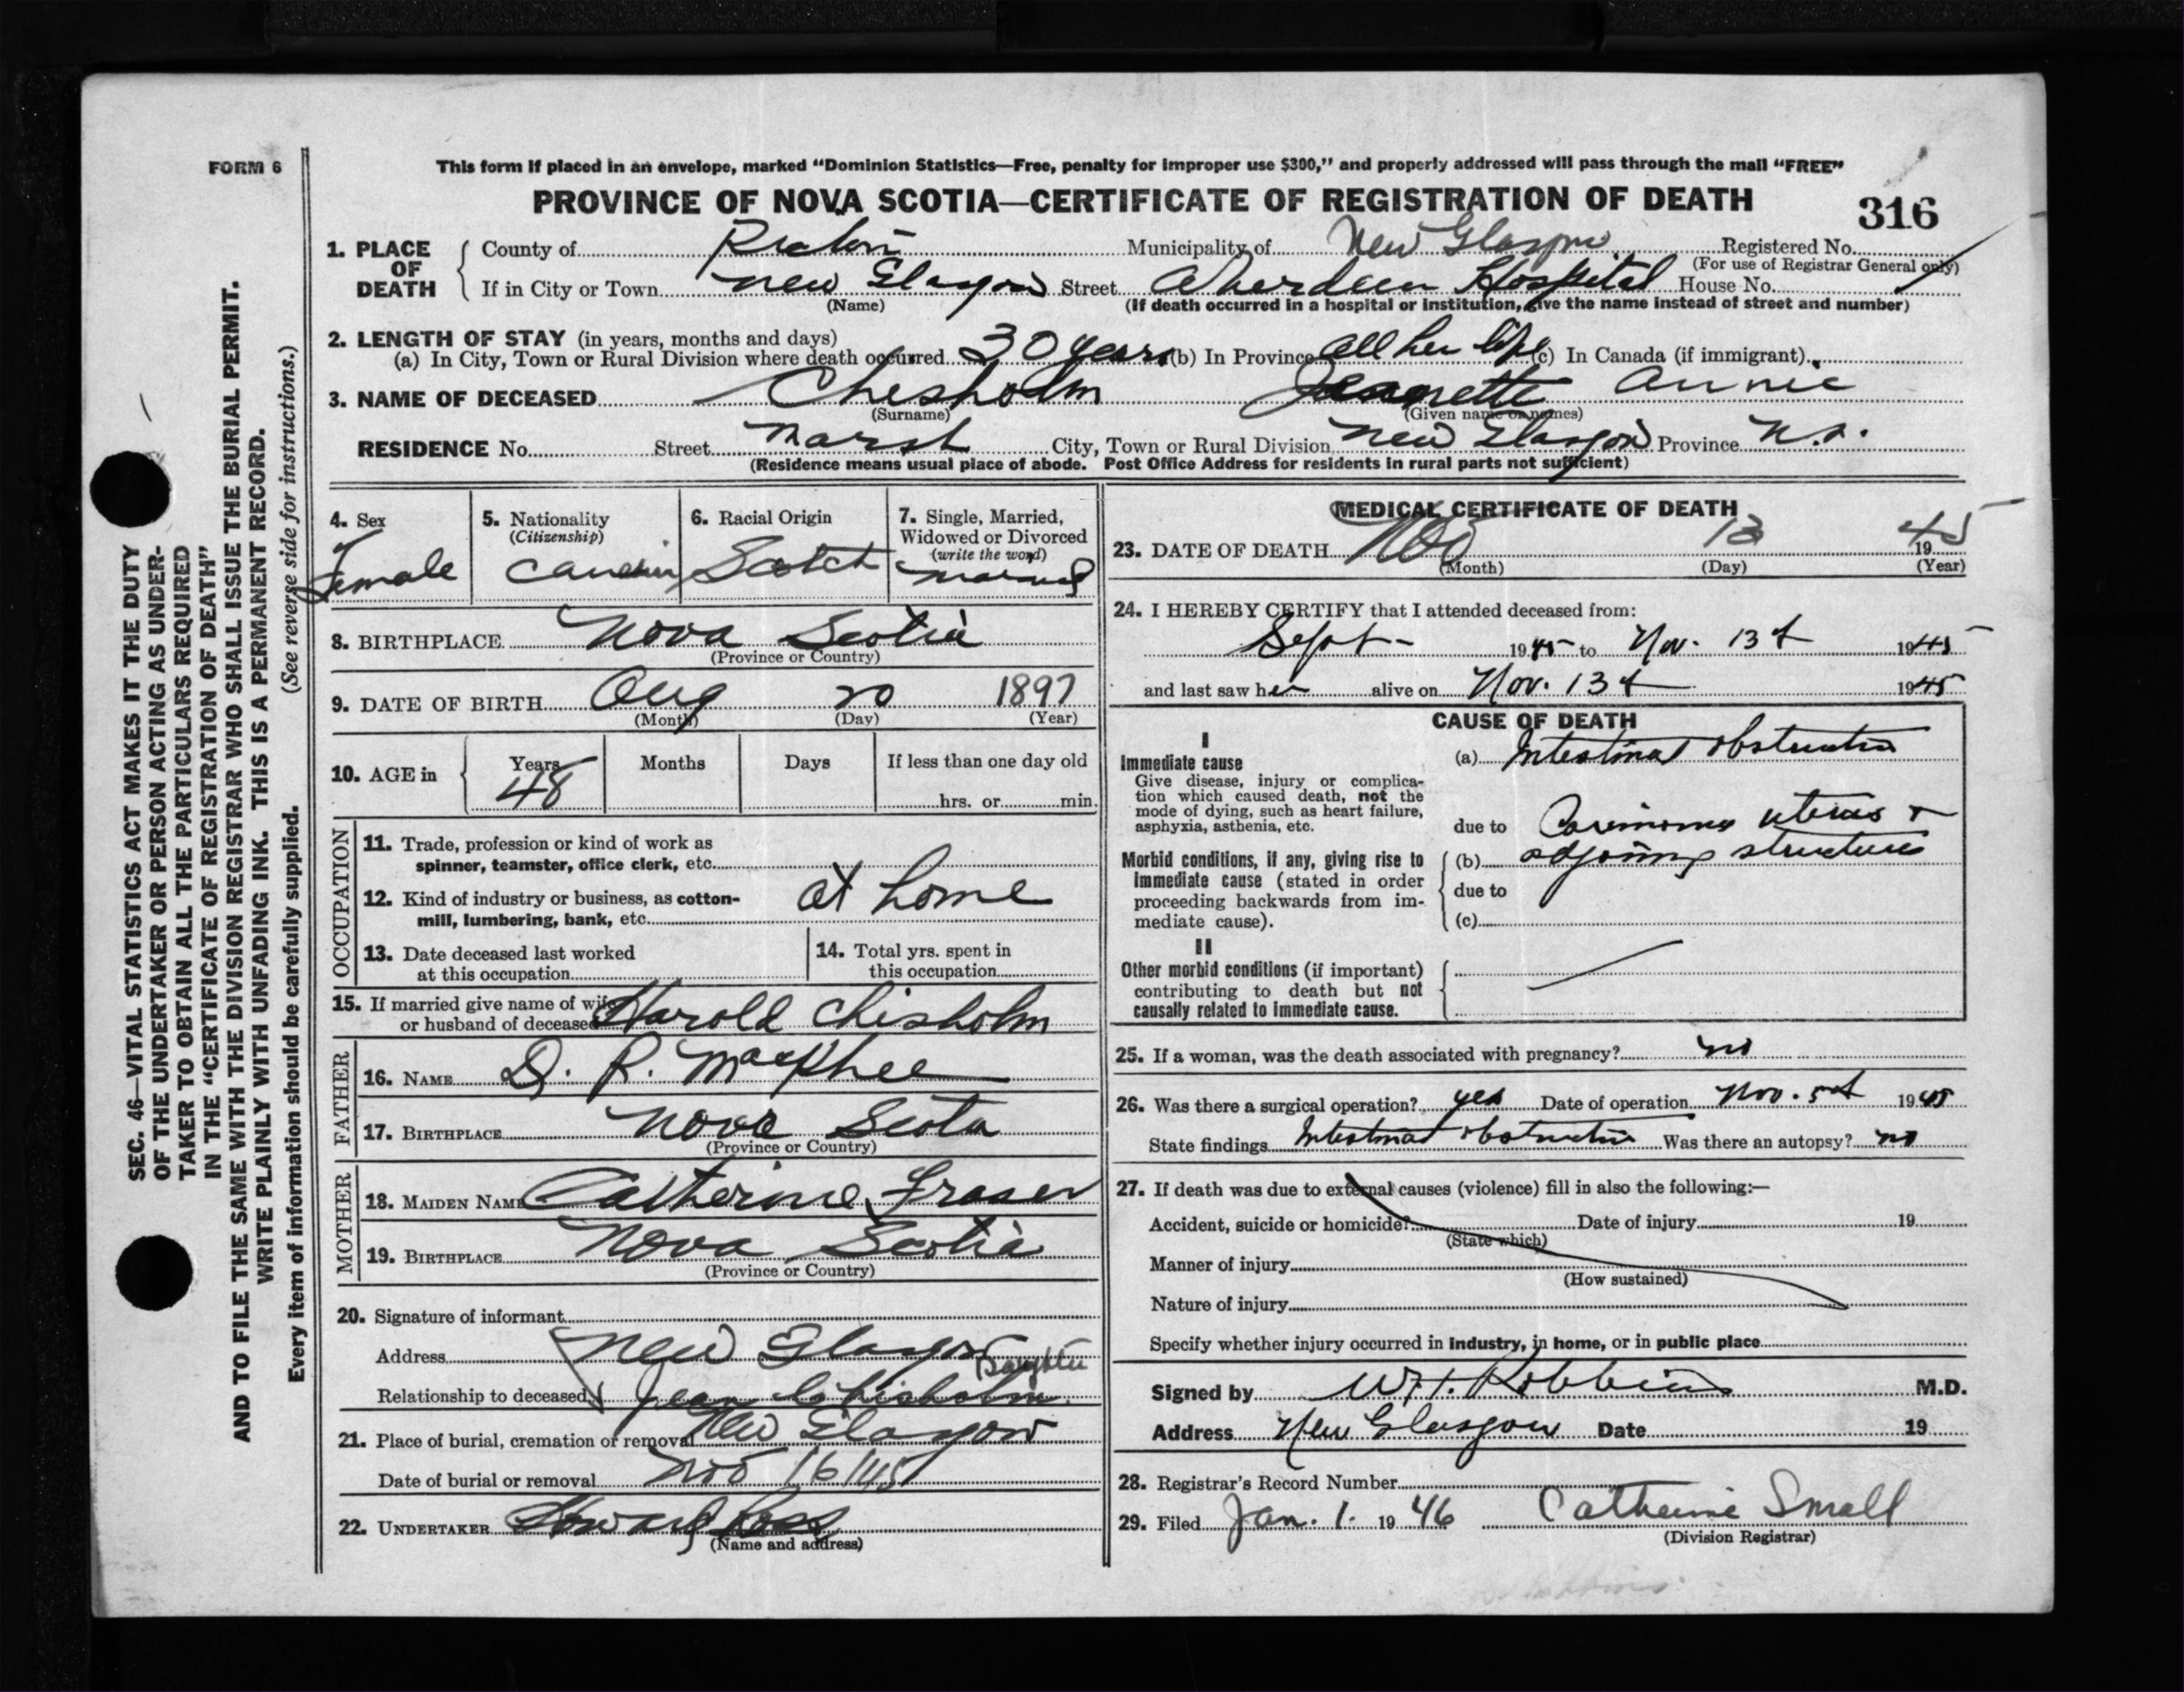 FORM 6
This form if placed in an envelope, marked "Dominion Statistics—Free, penalty for improper use $300," and properly addressed will pass through the mail "FREE"
PROVINCE OF NOVA SCOTIA—CERTIFICATE OF REGISTRATION OF DEATH
316
1. PLACE OF DEATH
County of Pictou Municipality of New Glasgow Registered No.
(For use of Registrar General only)
If in City or Town New Glasgow Street Aberdeen Hospital House No.
(Name) (If death occurred in a hospital or institution, give the name instead of street and number)
2. LENGTH OF STAY (in years, months and days)
(a) In City, Town or Rural Division where death occurred 30 years (b) In Province all her life (c) In Canada (if immigrant)
3. NAME OF DECEASED Chesholm Jeanette Annie
(Surname) (Given name or names)
RESIDENCE No. Street Marsh City, Town or Rural Division New Glasgow Province N.S.
(Residence means usual place of abode. Post Office Address for residents in rural parts not sufficient)
4. Sex Female
5. Nationality (Citizenship)
6. Racial Origin Scotch
7. Single, Married, Widowed or Divorced (write the word) Married
8. BIRTHPLACE Nova Scotia
(Province or Country)
9. DATE OF BIRTH Aug 20 1897
(Month) (Day) (Year)
10. AGE in Years 48 Months Days If less than one day old
hrs. or min.
OCCUPATION
11. Trade, profession or kind of work as
spinner, teamster, office clerk, etc.
12. Kind of industry or business, as cotton-
mill, lumbering, bank, etc. at home
13. Date deceased last worked
at this occupation
14. Total yrs. spent in
this occupation
15. If married give name of wife
or husband of deceased Harold Chisholm
FATHER
16. NAME D. R. MacPhee
17. BIRTHPLACE Nova Scota
(Province or Country)
MOTHER
18. MAIDEN NAME Catherine Fraser
19. BIRTHPLACE Nova Scotia
(Province or Country)
20. Signature of informant
Address New Glasgow
Daughter
Relationship to deceased Jean Chisholm
21. Place of burial, cremation or removal New Glasgow
Date of burial or removal Nov 16/45
22. UNDERTAKER Howard Ross
(Name and address)
MEDICAL CERTIFICATE OF DEATH
23. DATE OF DEATH Nov 13 1945
(Month) (Day) (Year)
24. I HEREBY CERTIFY that I attended deceased from:
Sept- 1945 to Nov. 13th 1945
and last saw her alive on Nov. 13th 1945
CAUSE OF DEATH
I
Immediate cause
Give disease, injury or complica-
tion which caused death, not the
mode of dying, such as heart failure,
asphyxia, asthenia, etc.
(a) Intestinal obstruction
due to Carcinoma uterus +
Morbid conditions, if any, giving rise to
immediate cause (stated in order
proceeding backwards from im-
mediate cause).
(b) adjoining structures
due to
(c)
II
Other morbid conditions (if important)
contributing to death but not
causally related to immediate cause.
25. If a woman, was the death associated with pregnancy? no
26. Was there a surgical operation? yes Date of operation Nov. 5th 1945
State findings Intestinal obstruction Was there an autopsy? no
27. If death was due to external causes (violence) fill in also the following:—
Accident, suicide or homicide? Date of injury 19
(State which)
Manner of injury
(How sustained)
Nature of injury
Specify whether injury occurred in industry, in home, or in public place
Signed by W.H. Robbins M.D.
Address New Glasgow Date 19
28. Registrar's Record Number
29. Filed Jan. 1. 1946 Catherine Small
(Division Registrar)
SEC. 46—VITAL STATISTICS ACT MAKES IT THE DUTY
OF THE UNDERTAKER OR PERSON ACTING AS UNDER-
TAKER TO OBTAIN ALL THE PARTICULARS REQUIRED
IN THE "CERTIFICATE OF REGISTRATION OF DEATH"
AND TO FILE THE SAME WITH THE DIVISION REGISTRAR WHO SHALL ISSUE THE BURIAL PERMIT.
WRITE PLAINLY WITH UNFADING INK. THIS IS A PERMANENT RECORD.
Every item of information should be carefully supplied. (See reverse side for instructions.)